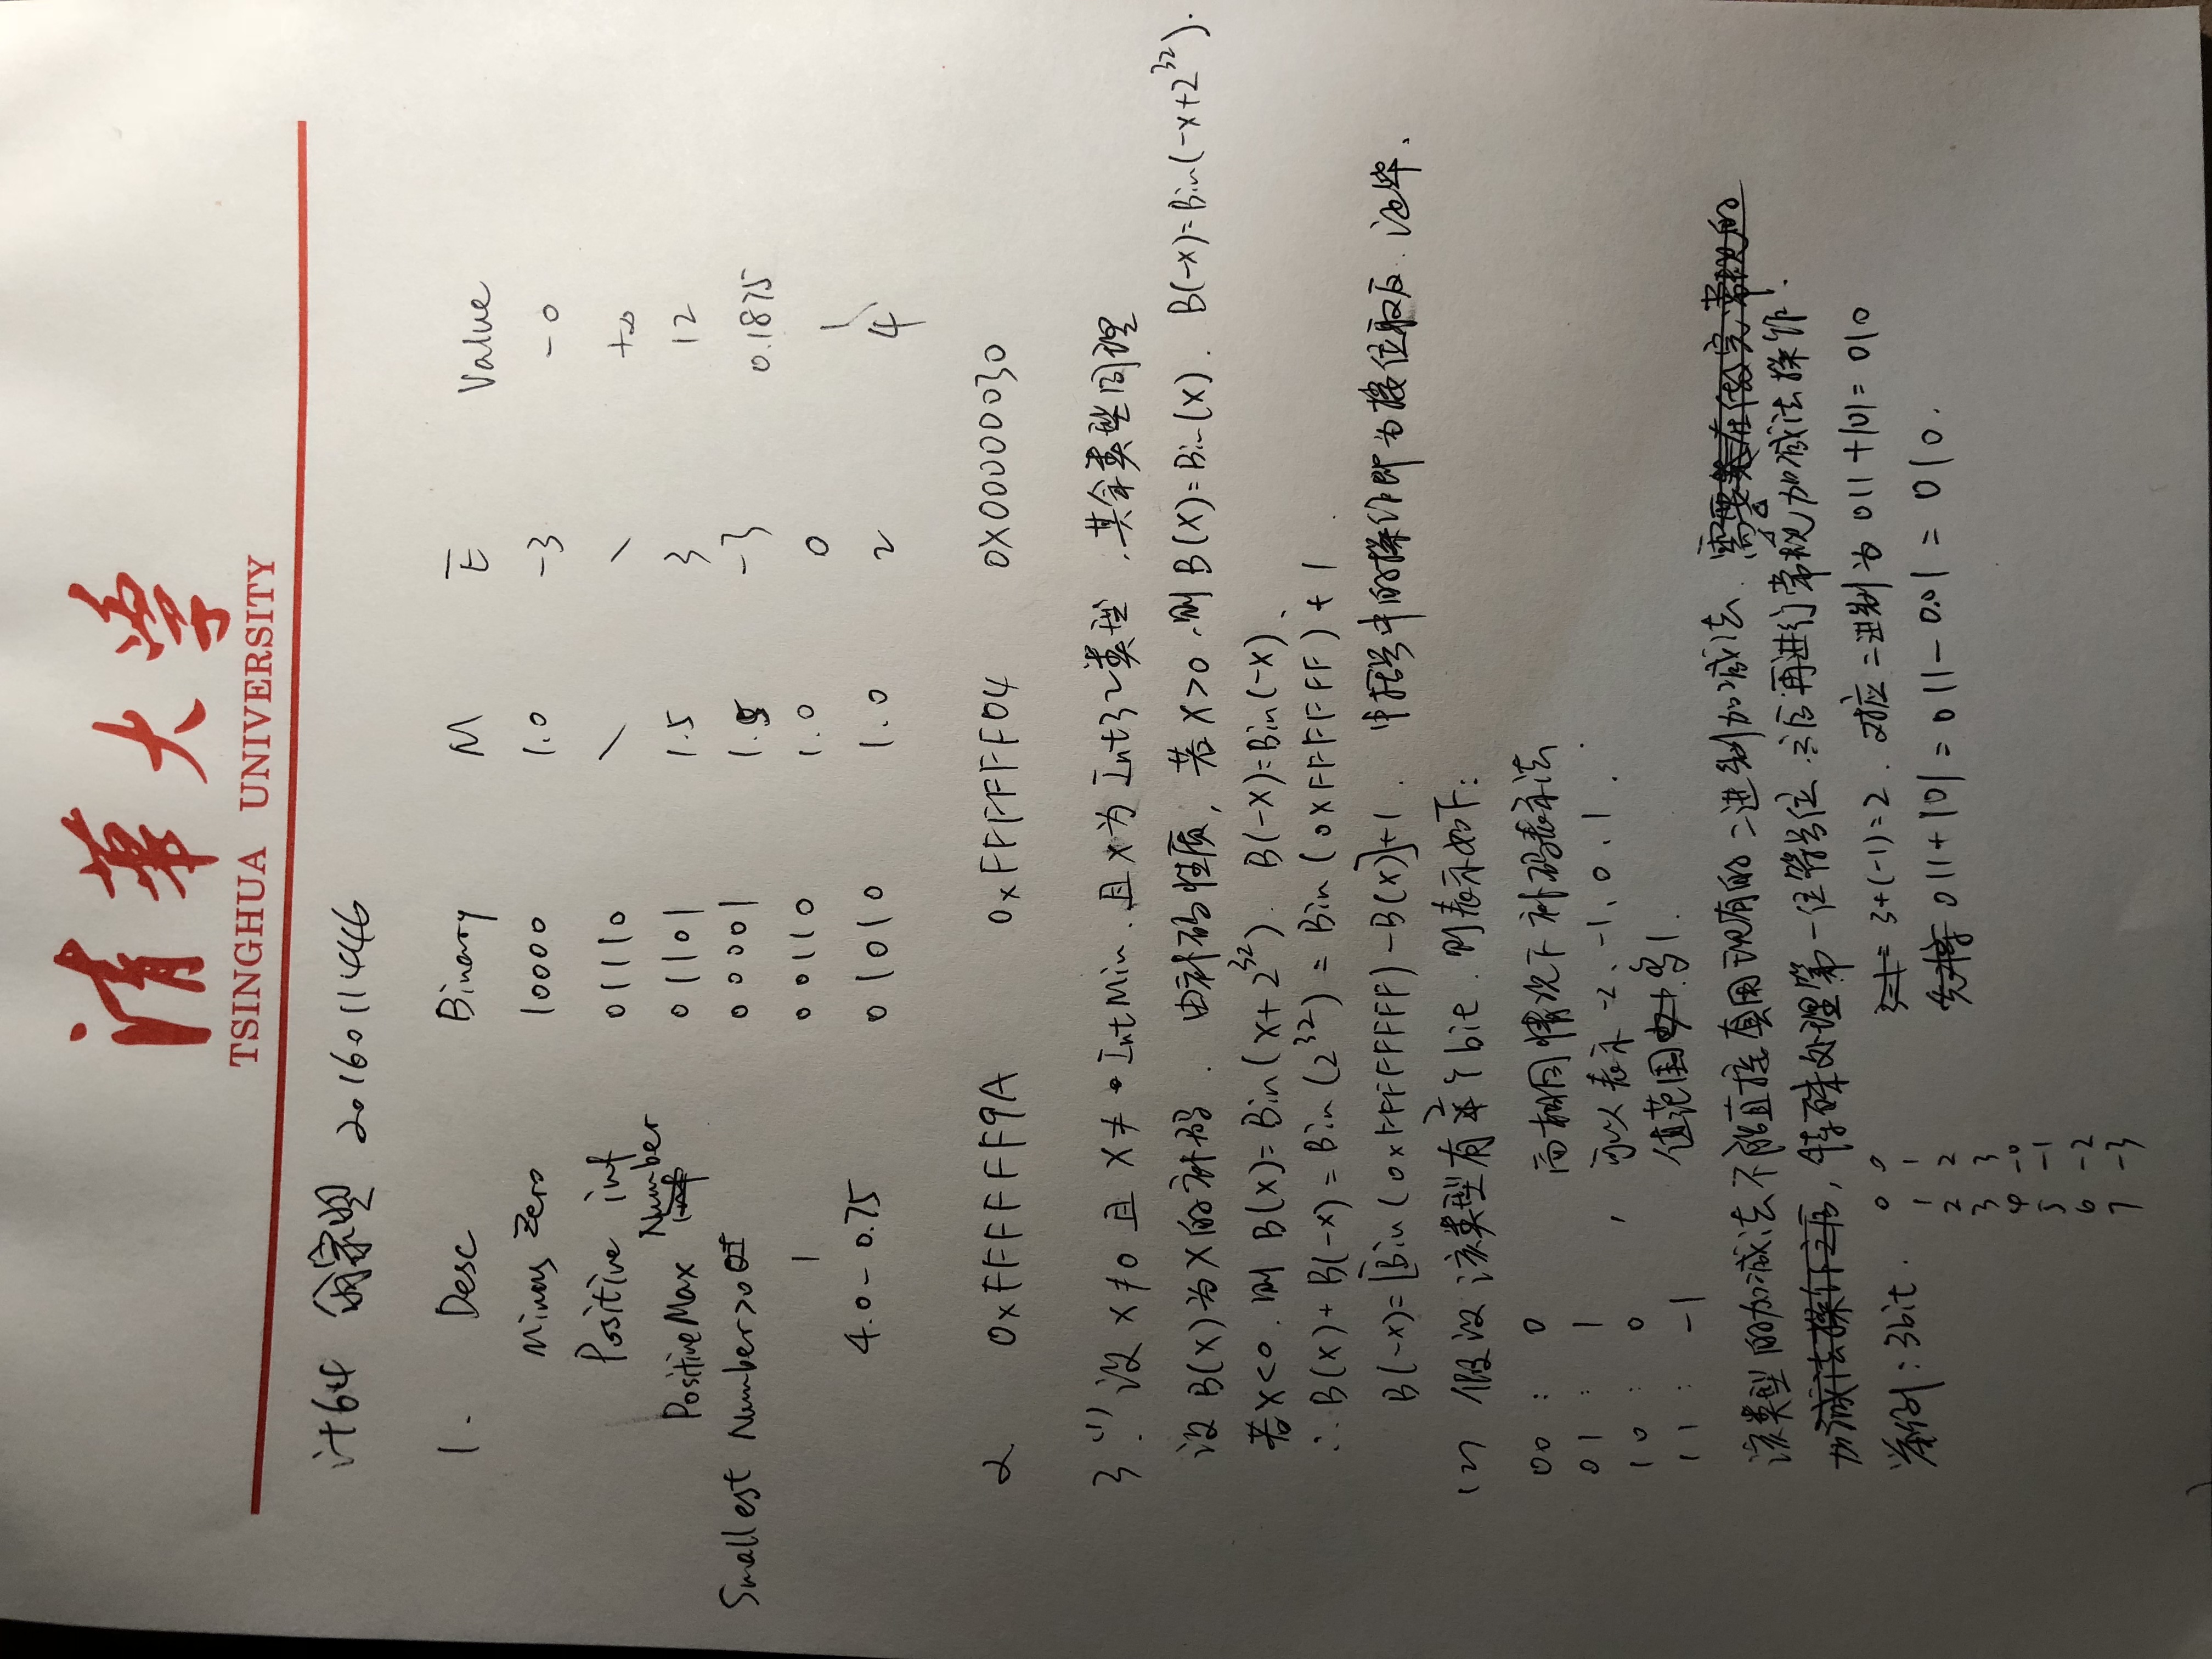 清華大学
TSINGHUA UNIVERSITY
计64 翁家翌 2016011446
1. Desc Binary M E Value
Minus Zero 10000 1.0 -3 -0
Positive inf 01110 \ \ +∞
Positive Max Number 01101 1.5 3 12
Smallest Number>0 00001 1.5 -3 0.1875
1 00110 1.0 0 1
4.0-0.75 01010 1.0 2 4
2 0xFFFFFF9A 0xFFFFFF04 0X00000030
3.(1) 设 x≠0 且 X≠IntMin. 且x为Int32类型,其余类型同理
设B(X)为X的补码. 由补码性质, 若X>0,则B(X)=Bin(X). B(-X)=Bin(-X+2^32).
若X<0. 则 B(X)=Bin(X+2^32). B(-X)=Bin(-X).
∴B(X)+B(-X)=Bin(2^32)=Bin(0xFFFFFF)+1.
B(-X)=[Bin(0xFFFFFFFF)-B(X)]+1. 中括号中的操作即为按位取反. 证毕.
(2) 假设该类型有2个bit. 则表示如下:
00 : 0 而相同情况下补码表示法
01 : 1 , 可以表示-2、-1、0、1.
10 : 0 值范围多1.
11 : -1
该类型的加减法不能直接套用现有的二进制加减法. 需要
特殊处理第一位符号位.之后再进行常规加减法操作.
举例:3bit. 0 0 3+(-1)=2. 对应二进制为 011+101=010
1 1 011+101=011-001=010.
2 2
3 3
4 -0
5 -1
6 -2
7 -3